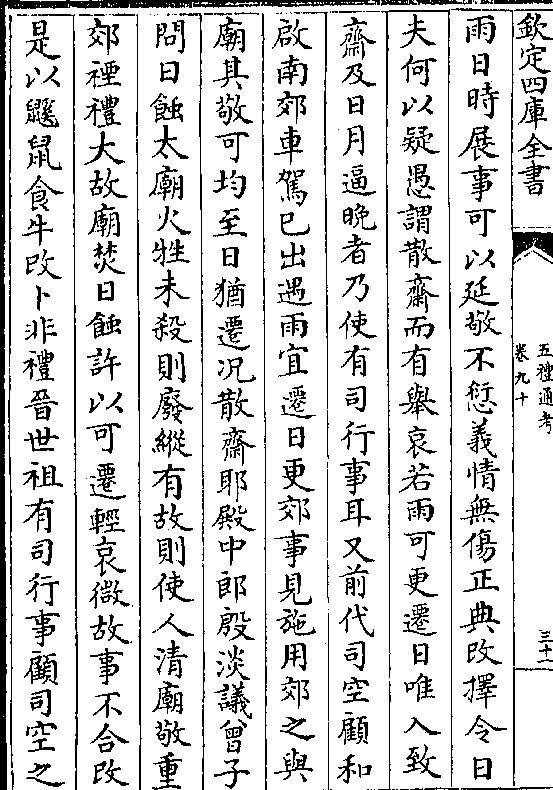 欽定四庫全書
五禮通考
卷九十
三十一
雨日時展事可以延敬不愆義情無傷正典改擇令日
夫何以疑愚謂散齋而有舉哀若雨可更遷日唯入致
齋及日月逼晚者乃使有司行事耳又前代司空顧和
啟南郊車駕已出遇雨宜遷日更郊事見施用郊之與
廟其敬可均至日猶遷况散齋耶殿中郎殷淡議曾子
問日蝕太廟火牲未殺則廢縱有故則使人清廟敬重
郊禋禮大故廟焚日蝕許以可遷輕哀微故事不合改
是以鼷鼠食牛改卜非禮晉世祖有司行事顧司空之